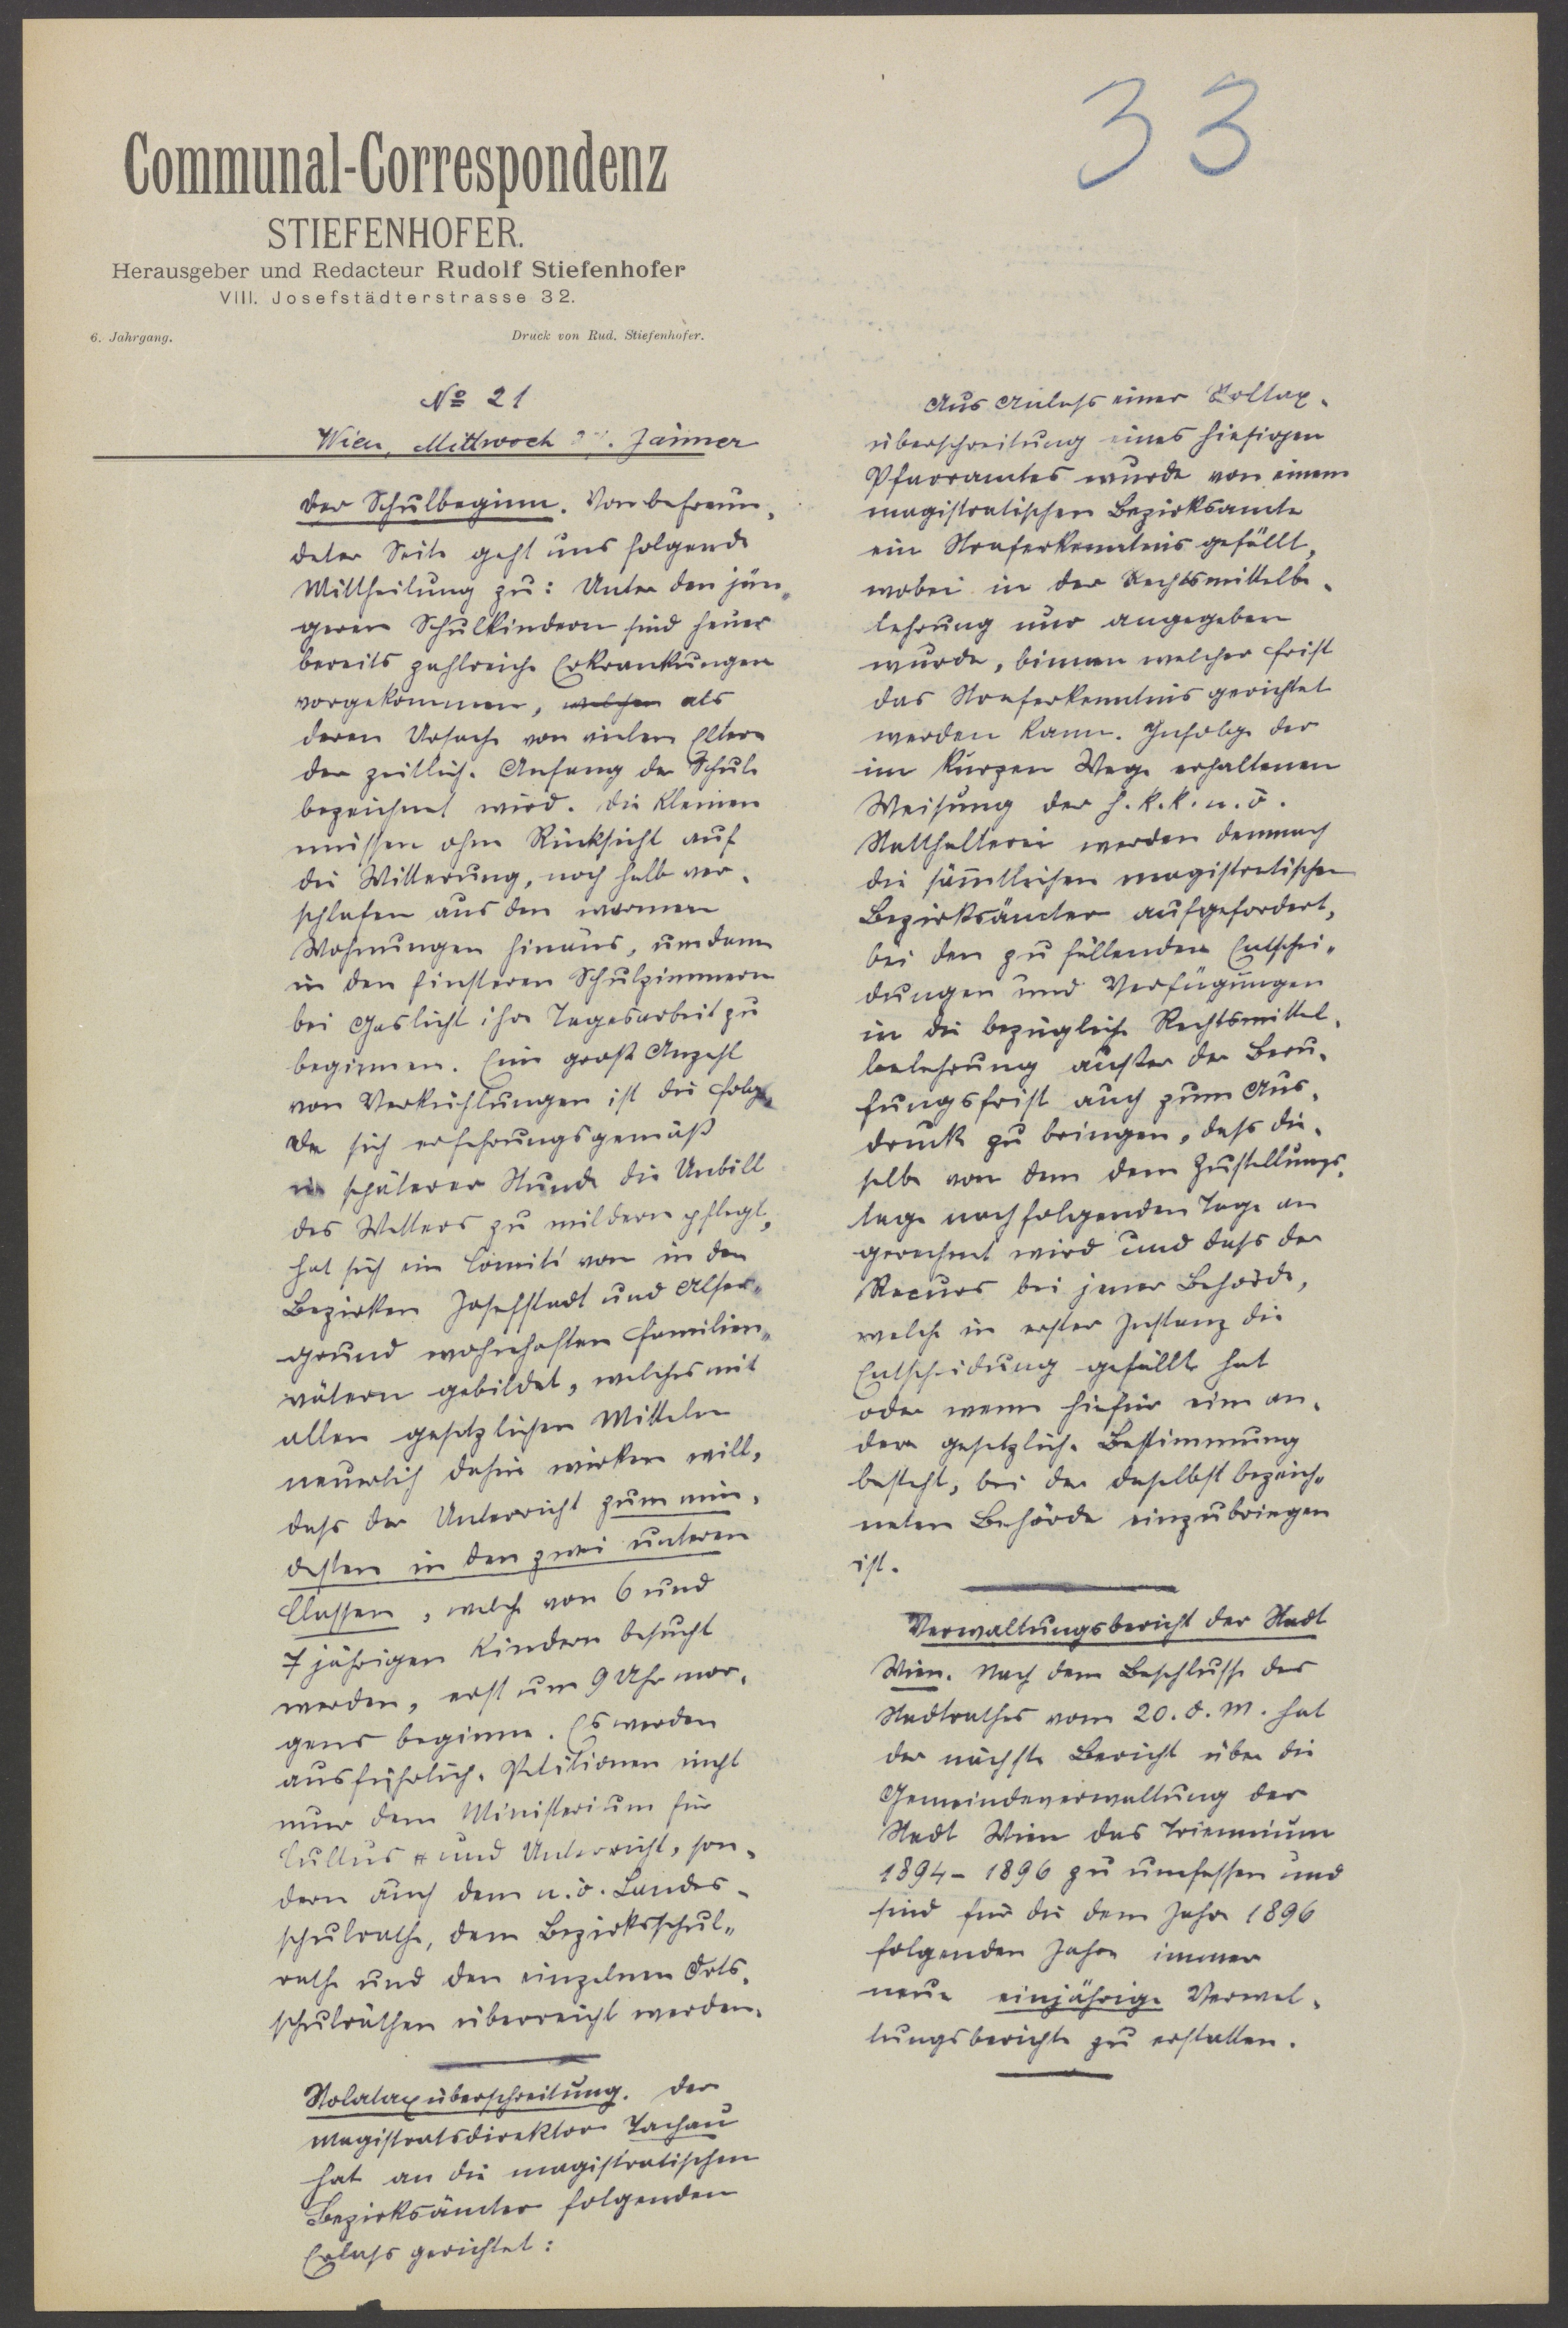 33
Communal-Correspondenz
STIEFENHOFER.
Herausgeber und Redacteur Rudolf Stiefenhofer
VIII. Josefstädterstrasse 32.
6. Jahrgang. Druck von Rud. Stiefenhofer.
No 21
Wien, Mittwoch . Jänner
Der Schulbeginn. Von befreun-
deter Seite geht uns folgende
Mittheilung zu: Unter den jün-
geren Schulkindern sind heuer
bereits zahlreiche Erkrankungen
vorgekommen, welchen als
deren Ursache von vielen Eltern
der zeitliche Anfang der Schule
bezeichnet wird. Die Kleinen
müssen ohne Rücksicht auf
die Witterung, noch halb ver-
schlafen aus den warmen
Wohnungen hinaus, um dann
in den finsteren Schulzimmern
bei Gaslicht ihre Tagesarbeit zu
beginnen. Eine große Anzahl
von Verkühlungen ist die Folge,
Da sich erfahrungsgemäß
in späterer Stunde die Unbill
des Wetters zu mildern pflegt,
hat sich ein Comité von in den
Bezirken Josefstadt und Alser-
grund wohnhaften Familien-
vätern gebildet, welches mit
allen gesetzlichen Mitteln
neuerlich dahin wirken will,
dass der Unterricht zum min-
desten in den zwei unteren
Classen, welche von 6 und
7 jährigen Kindern besucht
werden, erst um 9 Uhr mor-
gens beginne. Es werden
ausführliche Petitionen nicht
nur dem Ministerium für
Cultus und Unterricht, son-
dern auch dem n.ö. Landes-
schulrathe, dem Bezirksschul-
rathe und den einzelnen Orts-
schulräthen überreicht werden.
Stolataxüberschreitung. Der
Magistratsdirektor Tachau
hat an die magistratischen
Bezirksämter folgenden
Erlass gerichtet:
Aus Anlass einer Stoltax-
überschreitung eines hiesigen
Pfarramtes wurde von einem
magistratischen Bezirksamte
ein Straferkenntnis gefällt,
wobei in der Rechtsmittelbe-
lehrung nur angegeben
wurde, binnen welcher Frist
das Straferkenntnis gerichtet
werden kann. Infolge der
im kurzen Wege erhaltenen
Weisung der h. k. k. n. ö.
Statthalterei werden demnach
die sämtlichen magistratischen
Bezirksämter aufgefordert,
bei den zu fällenden Entschei-
dungen und Verfügungen
in die bezügliche Rechtsmittel-
belehrung außer der Beru-
fungsfrist auch zum Aus-
druck zu bringen, dass die-
selbe von dem dem Zustellungs-
tage nachfolgenden Tage an
gerechnet wird und dass der
Recurs bei jener Behörde,
welche in erster Instanz die
Entscheidung gefällt hat
oder wenn hiefür eine an-
dere gesetzliche Bestimmung
besteht, bei der daselbst bezeich-
neten Behörde einzubringen
ist.
Verwaltungsbericht der Stadt
Wien. Nach dem Beschlusse des
Stadtrathes vom 20. d. M. hat
der nächste Bericht über die
Gemeindeverwaltung der
Stadt Wien das Triennium
1894 – 1896 zu umfassen und
sind für die dem Jahre 1896
folgenden Jahre immer
neue einjährige Verwal-
tungsberichte zu erstatten.